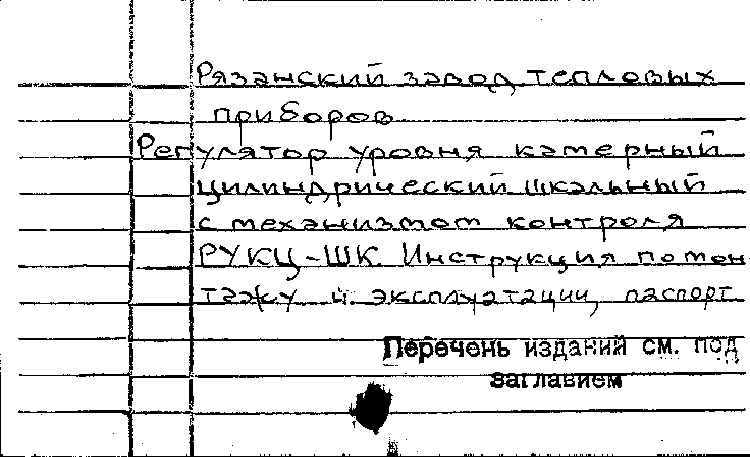 Рязанский завод тепловых
приборов
Регулятор уровня камерный
цилиндрический шкальный
с механизмом контроля
РУКЦ-ШК. Инструкция по мон
тажу и эксплуатации, паспорт
Перечень изданий см. под
заглавием